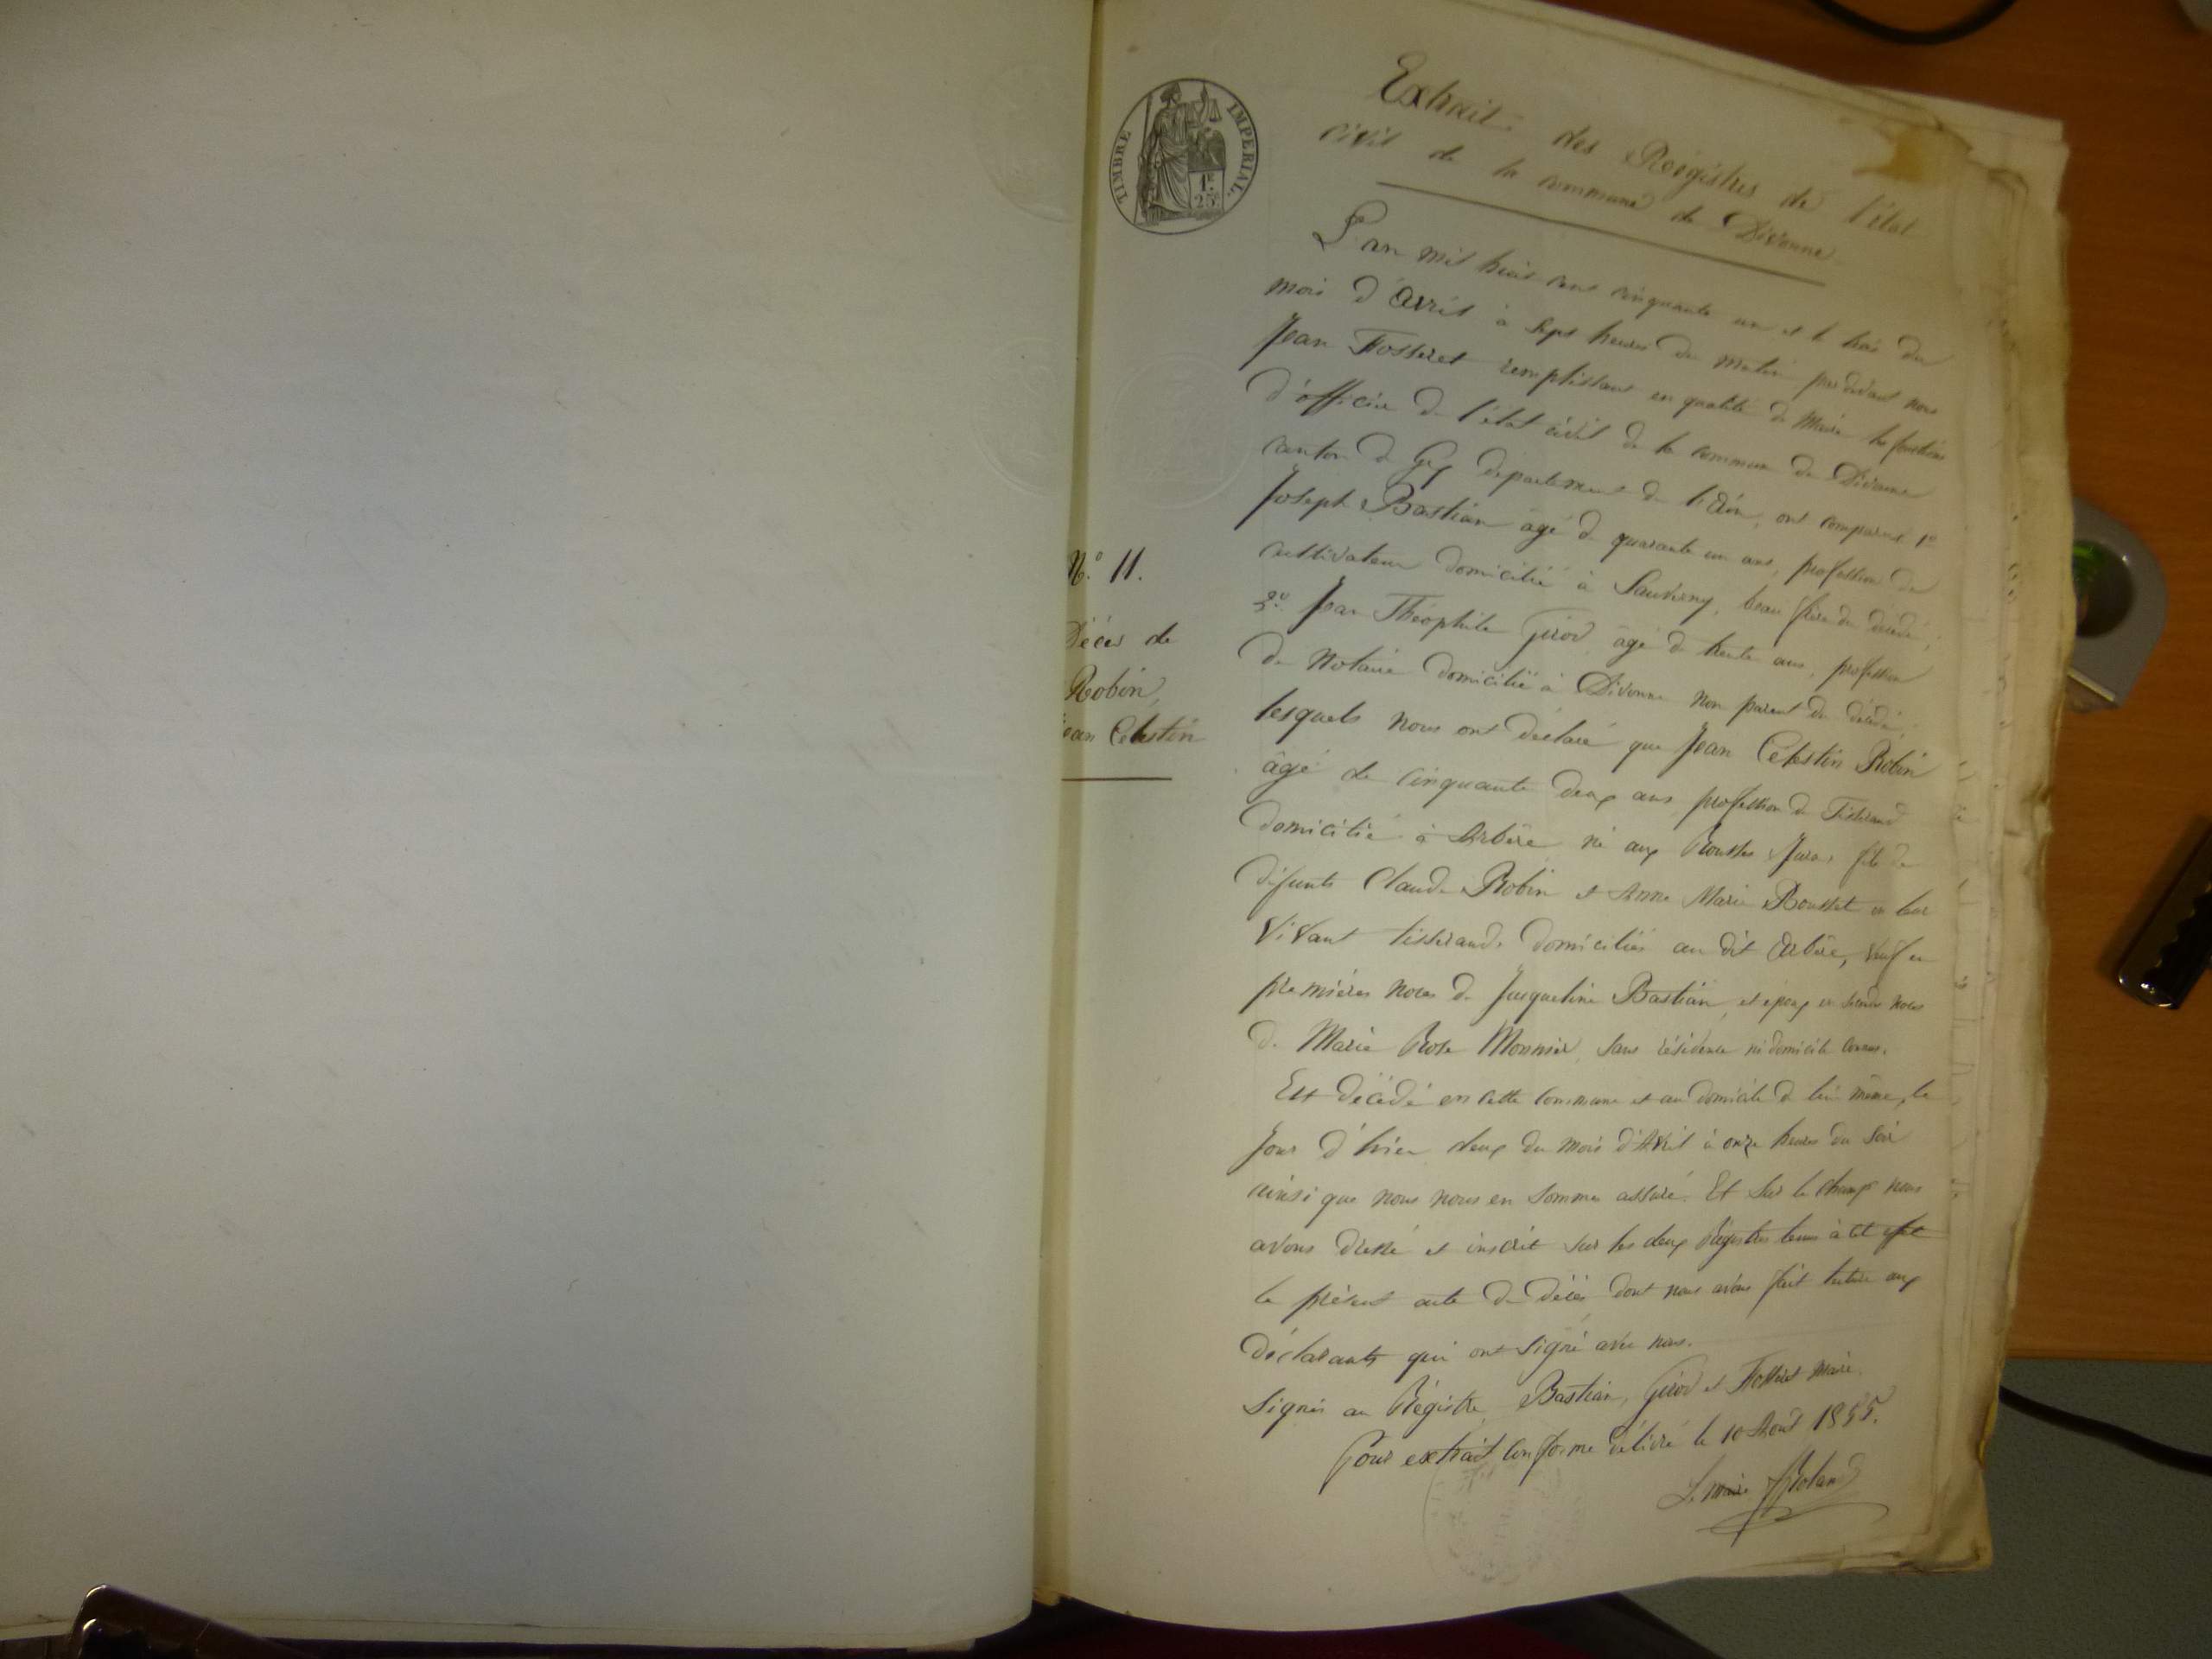 TIMBRE IMPERIAL.
1F.
25c
Extrait des Régistres de l'état
civil de la commune de Divonne
L'an mil huit cent cinquante un et le trois du
mois d'avril à sept heures du matin par devant nous
Jean Fosseret remplissant en qualité de Maire les fonctions
d'officier de l'état civil de la commune de Divonne
canton de Gex département de l'Ain, ont comparu 1º
Joseph Bastian âgé de quarante un ans, profession de
cultivateur domicilié à Sauverny, beau frère du décédé,
2º Jean Théophile Girod, âgé de trente ans, profession
de Notaire domicilié à Divonne non parent du décédé,
lesquels nous ont déclaré que Jean Célestin Robin
âgé de cinquante deux ans profession de Tisserand
domicilié à Arbère né aux Rousses Jura, fils de
défunts Claude Robin et Anne Marie Bousset en leur
vivant tisserands domiciliés au dit Arbère, veuf en
premières noces de Jacqueline Bastian, et époux en secondes noces
de Marie Rose Monnier, sans résidence ni domicile connus.
Est décédé en cette commune et au domicile de lui même, le
jour d'hier deux du mois d'Avril à onze heures du soir
ainsi que nous nous en sommes assuré. Et sur le champ nous
avons dressé et inscrit sur les deux Régistres tenus à cet effet
le présent acte de décès dont nous avons fait lecture aux
déclarants qui ont signé avec nous.
Signés au Régistre, Bastian, Girod et Fosseret Maire.
Pour extrait conforme délivré le 10 Août 1855.
Le maire
Nº 11.
Décès de
Robin,
Jean Célestin